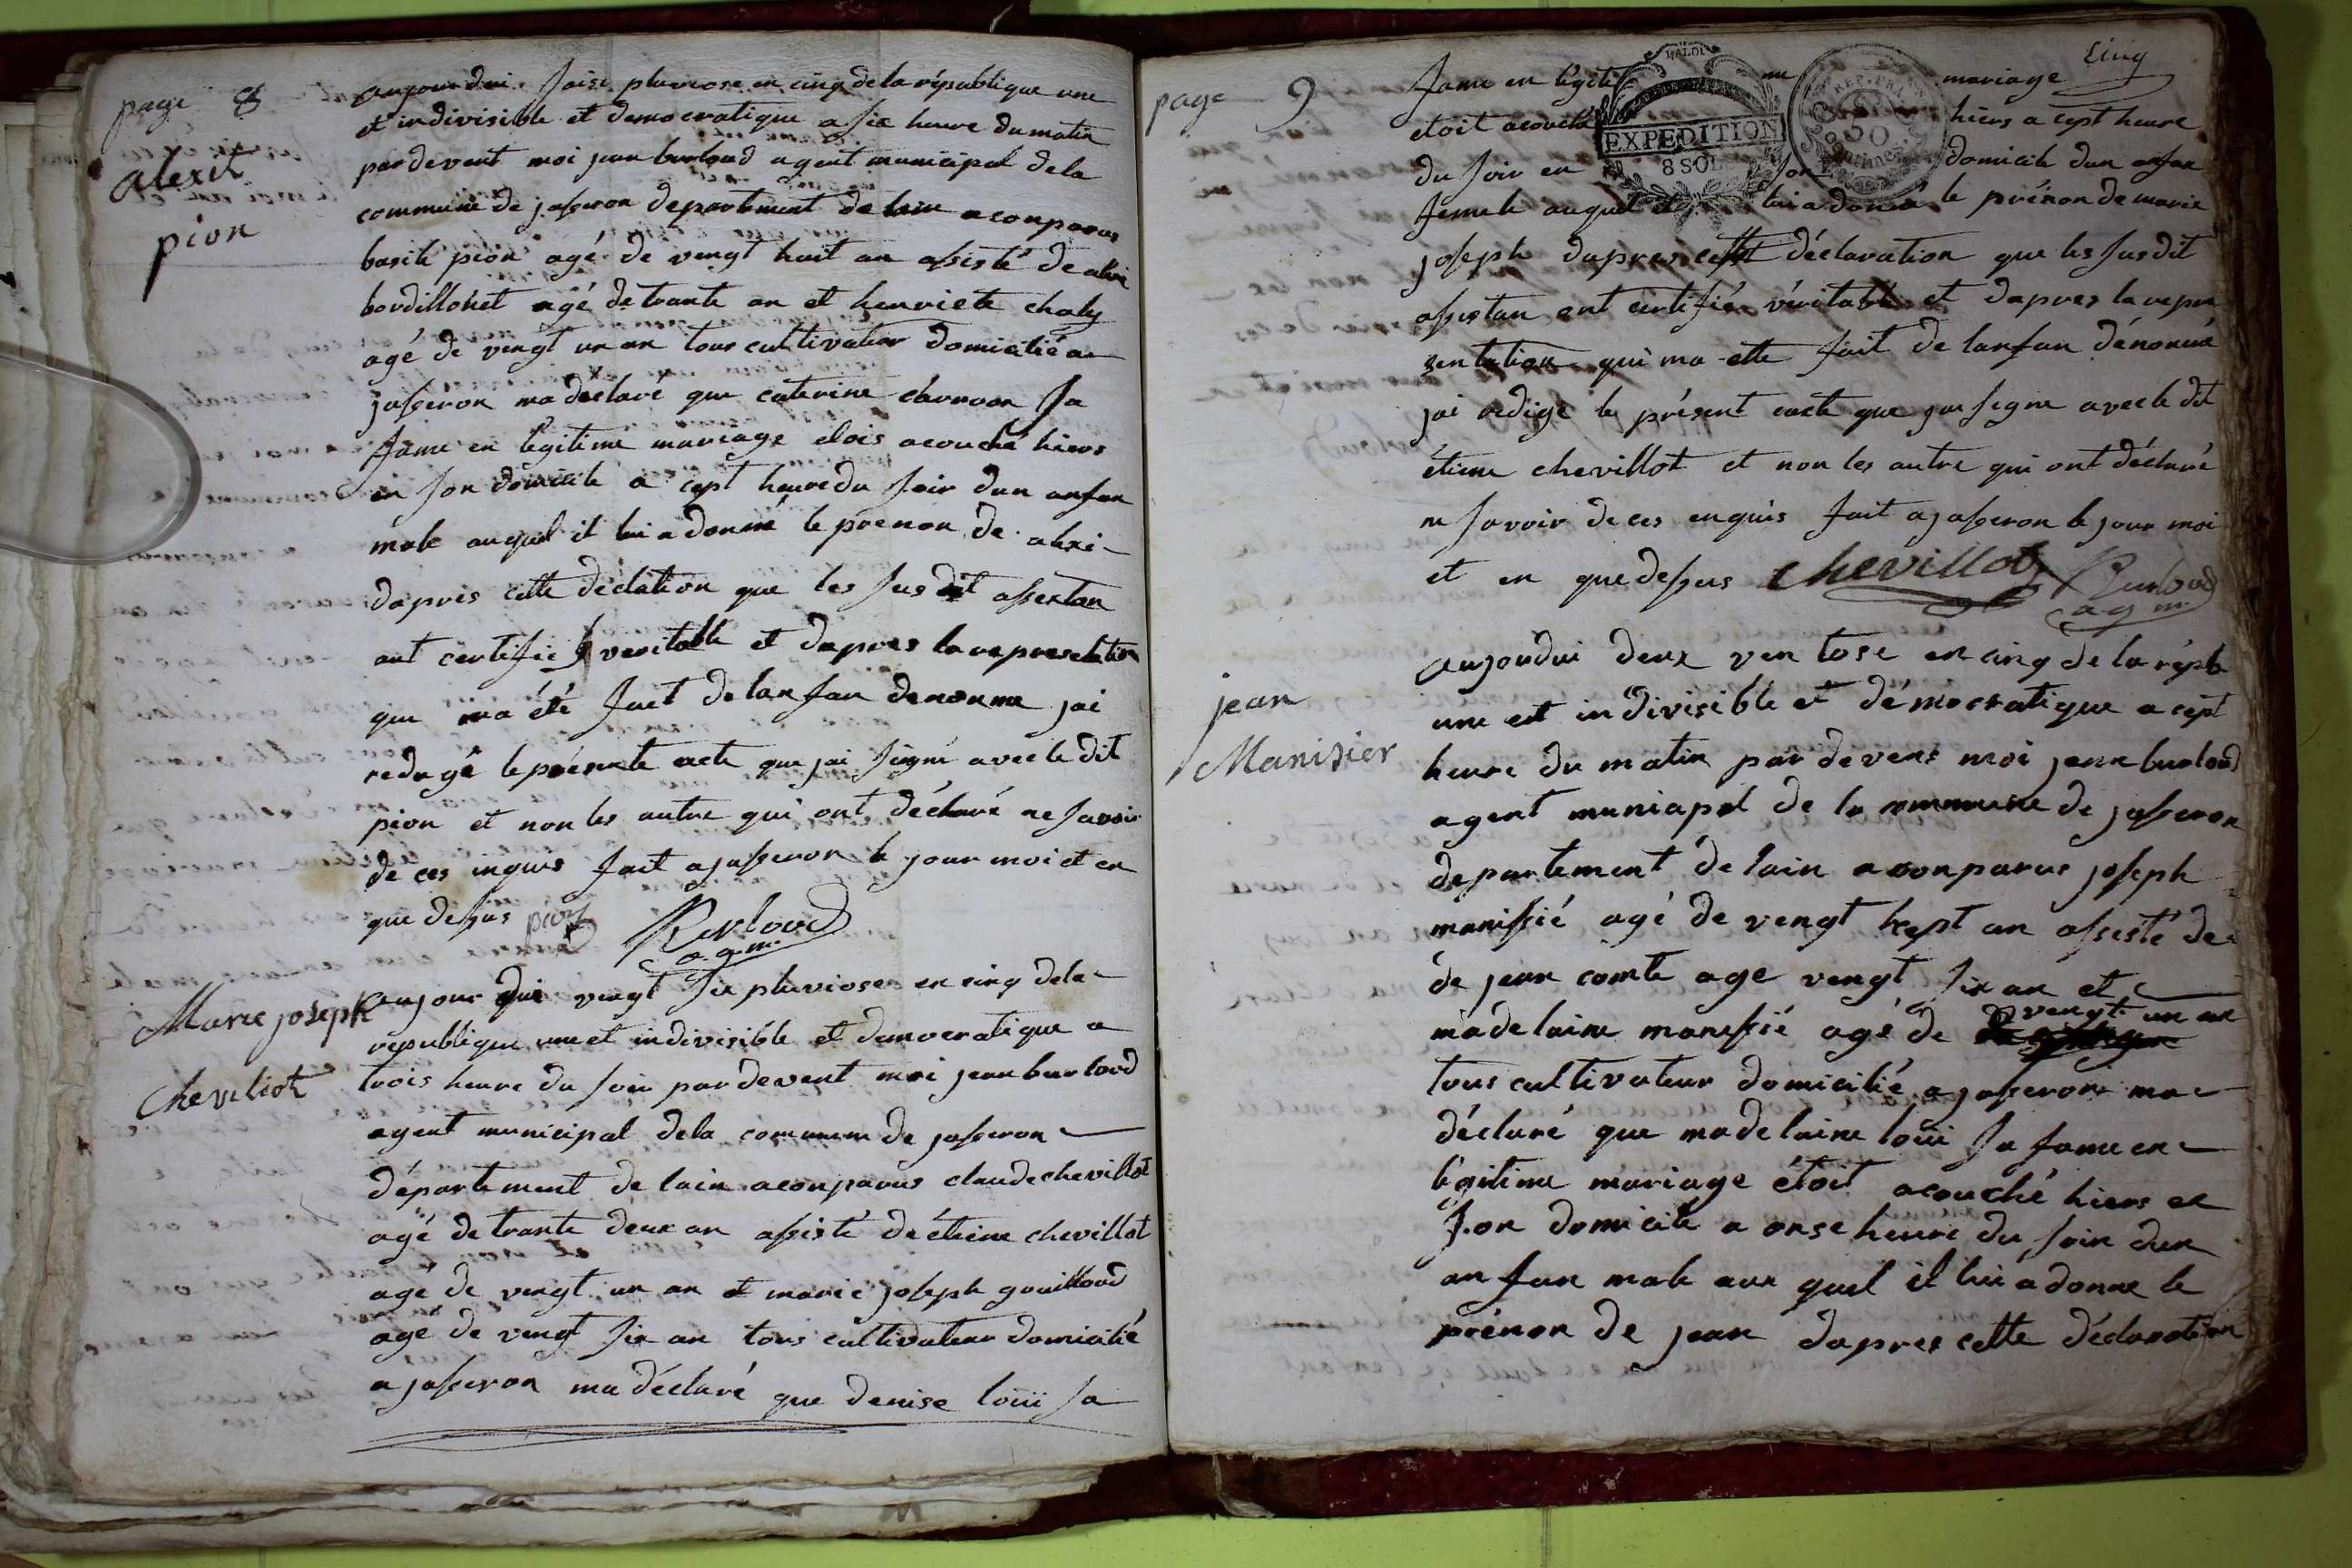 page 8
alexit
pion
aujourdui saise pluviose en cinq de la république une
et indivisible et democratique a six heure du matin
pardevent moi jean burloud agent municipal de la
commune de jasseron departement de lain a conparus
basile pion agé de vengt huit an assisté de
bordillonet agé de trante an et henriete chaly
agé de vengt un an tous cultivateur domicilié a
jasseron ma déclaré que caterine sa
fame en légitime mariage etois acouché hiers
en son domicile a cept heure du soir dun anfan
male auquel il lui a donné le prenon de alexi
dapres cette declation que les sus dit assestan
ont certifié veritable et dapres la represetation
que ma été fait de lanfan denonme jai
redigé le présente acte que jai signé avec le dit
pion et non les autre qui ont déclaré ne savoir
de ces inquis fait a jasseron le jour moi et en
que dessus pion Burloud
a.g.m.
Marie joseph
Cheviliot
aujour dui vengt six pluviose en cinq dela
republique une et indivisible et democratique a
trois heure du soir pardevent moi jean burloud
agent municipal dela commune de jasseron
département de lain a conparus claude chevillot
agé de trante deux an assisté de étiene chevillot
agé de vengt un an et marie joseph gouilloud
agé de vengt six an tous cultivateur domicilié
a jasseron ma déclaré que denise loüi sa
page 9
Cinq
EXPEDITION
8 SOLS
REP. FRA
50
Centimes
fame en légiti me mariage
etoit acouché hiers a cept heure
du soir en son domicile dun anfan
femele auquel il lui a donné le prénon de marie
joseph dapres cette déclaration que les susdit
assistan ont certifié véritable et dapres la repre
zentation qui ma ette fait de lanfan dénonmé
jai redigé le présent acte que jai signe avec le dit
étiene chevillot et non les autre qui ont déclaré
ne savoir de ces enquis fait a jasseron le jour moi
et en que dessus Chevillot Burloud
a g m.
jean
Manisier
aujourdui deux ventose en cinq de la répb
une et indivisible et démocratique a cept
heure du matin par devens moi jean burloud
agent municipal de la commune de jasseron
departement de lain a conparus joseph
manissié agé de vengt sept an assisté de
de jean comte age vengt six an et
madelaine manessié agé de vengt un an
tous cultivateur domicilié a jasseron ma
déclaré que madelaine loüi sa fame en
légitime mariage étoit acouché hiers en
son domicile a onse heure du soir dun
anfan male aux quel il lui a donne le
prénon de jean dapres cette déclaration